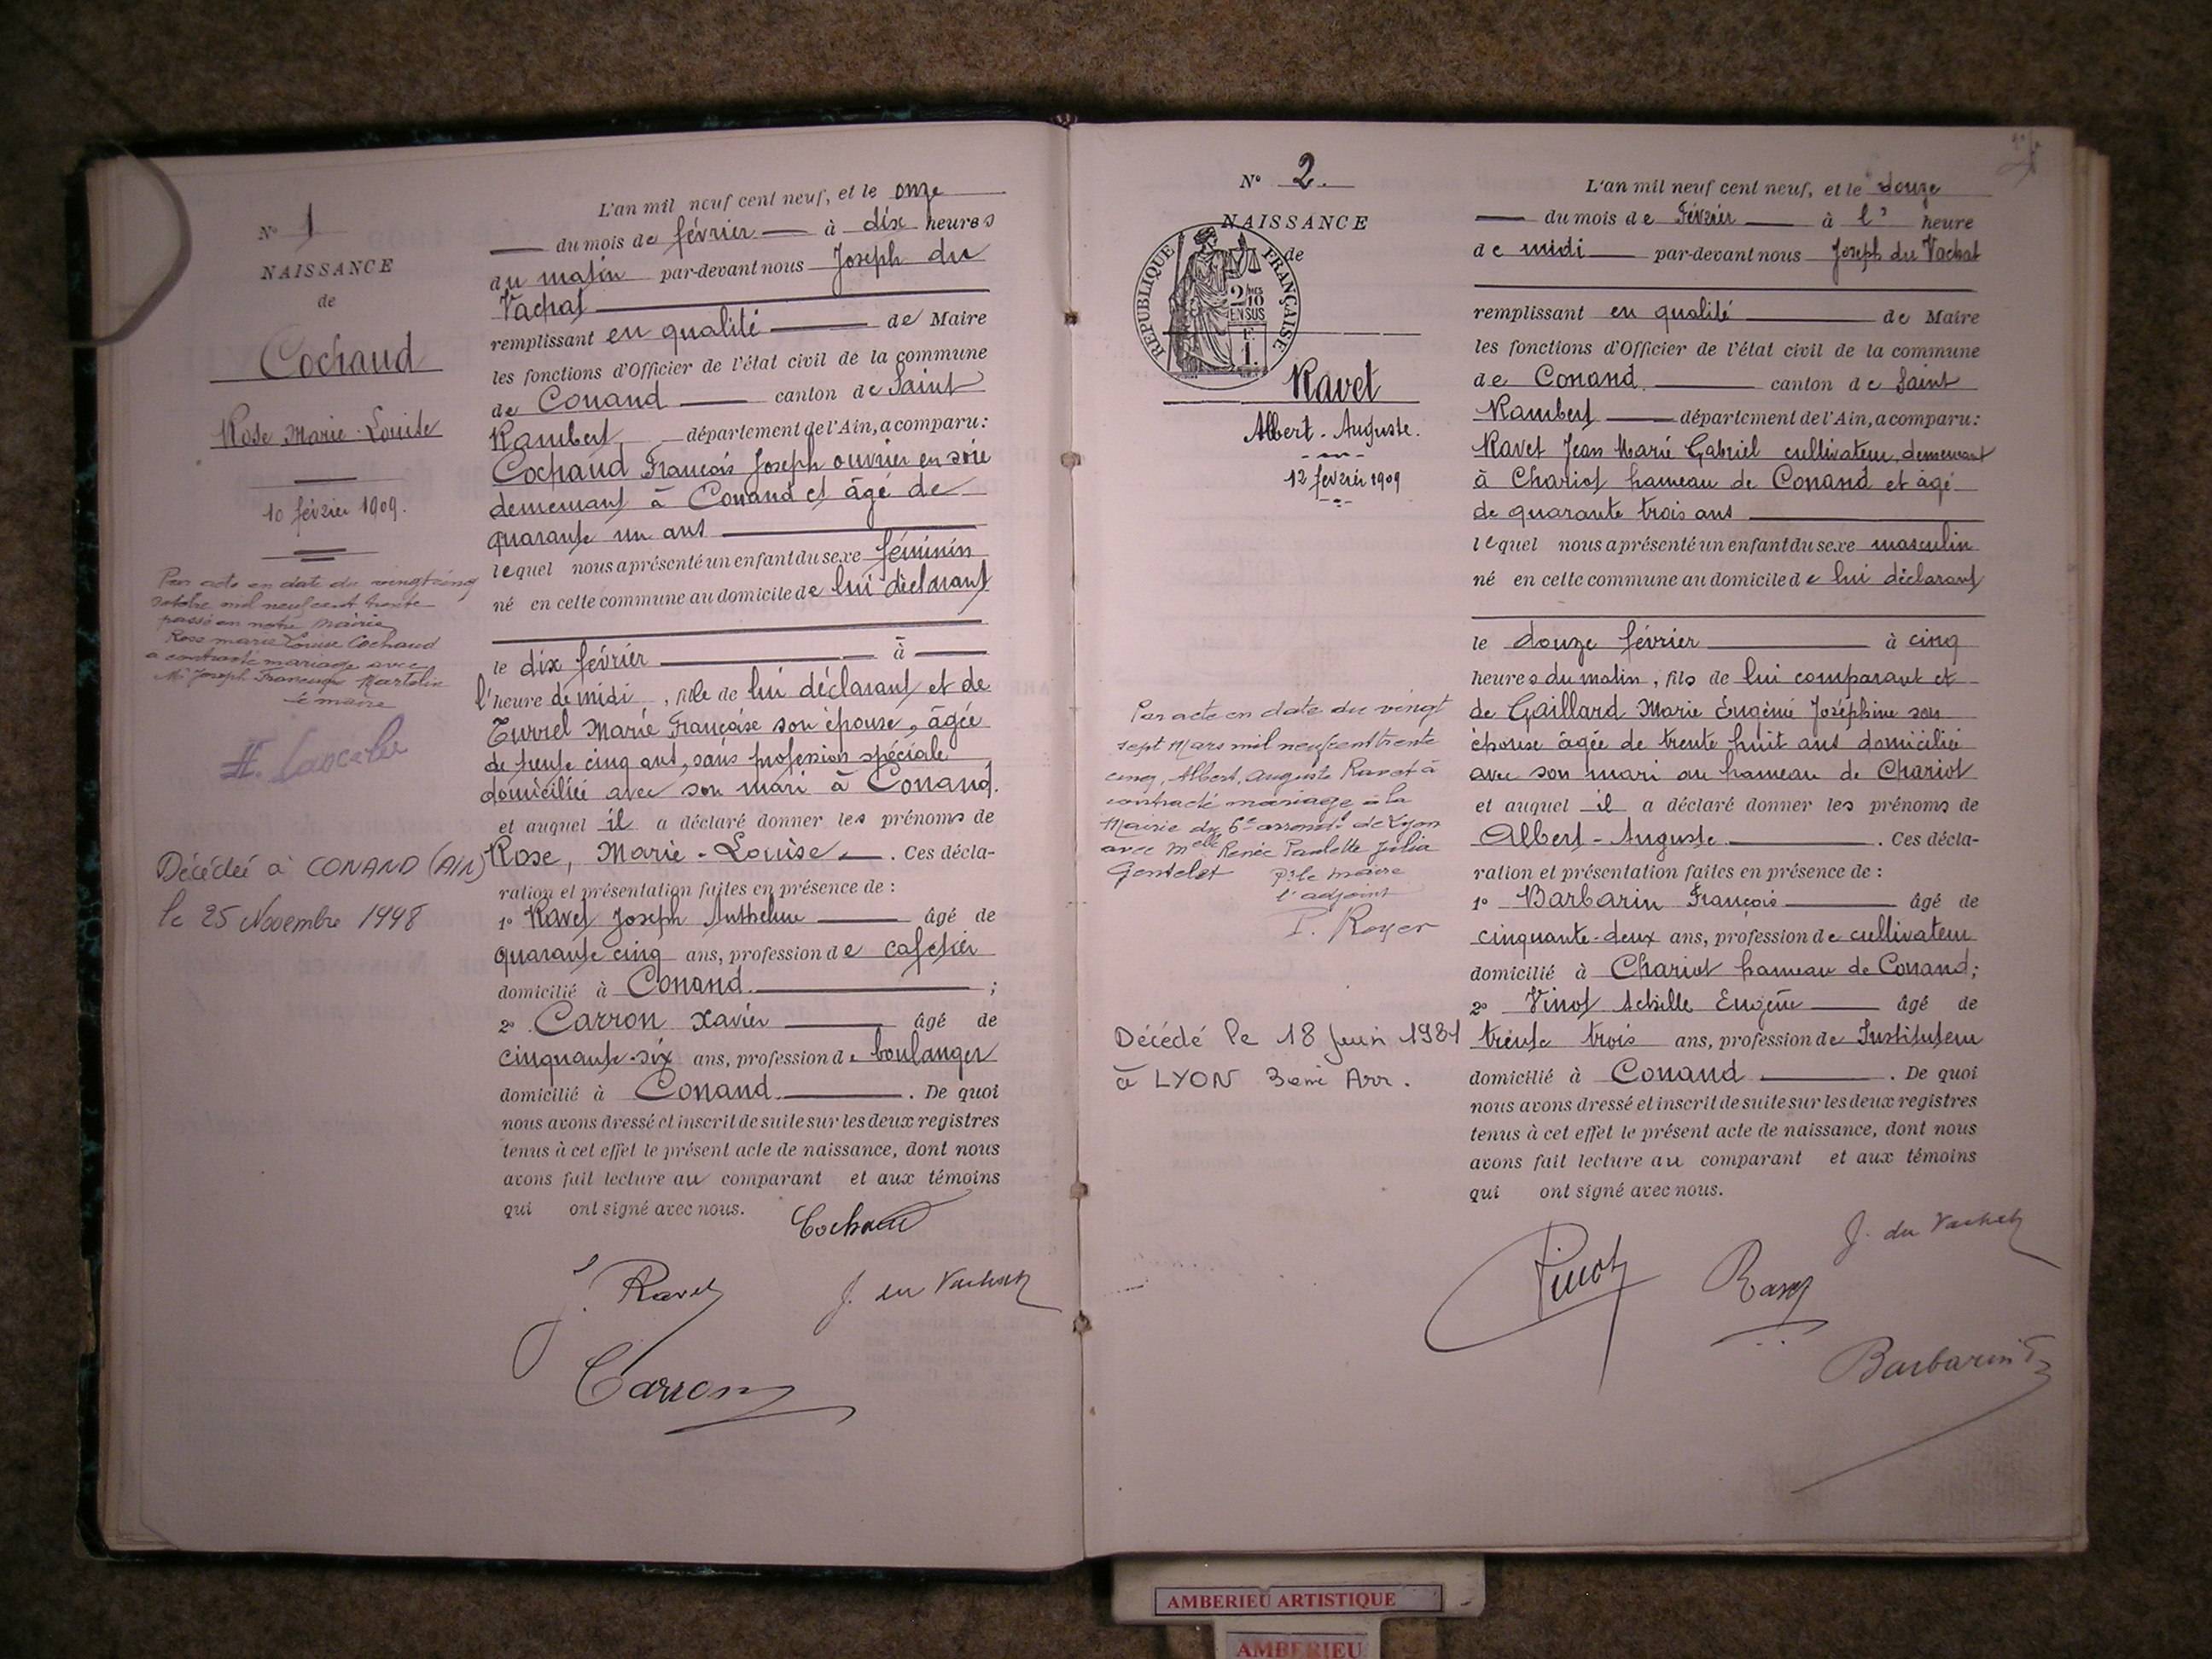 N° 1
NAISSANCE
de
Cochaud
Rose Marie-Louise
10 février 1909.
Par acte en date du vingt cinq
octobre mil neuf cent trente
passé en notre mairie
Rose marie Louise Cochaud
a contracté mariage avec
Mr Joseph Francisque Martelin
Le maire
Décédée à CONAND (AIN)
le 25 Novembre 1998
L'an mil neuf cent neuf, et le onze
du mois de février à dix heures
du matin par-devant nous Joseph du
Vachat
remplissant en qualité de Maire
les fonctions d'Officier de l'état civil de la commune
de Conand canton de Saint
Rambert département de l'Ain, a comparu:
Cochaud François Joseph ouvrier en soie
demeurant à Conand et âgé de
quarante un ans
lequel nous a présenté un enfant du sexe féminin
né en cette commune au domicile de lui déclarant
le dix février à
l'heure de midi, fille de lui déclarant et de
Turrel Marie Françoise son épouse, âgée
de trente cinq ans, sans profession spéciale
domiciliée avec son mari à Conand.
et auquel il a déclaré donner les prénoms de
Rose, Marie-Louise. Ces décla-
ration et présentation faites en présence de :
1° Ravet Joseph Anthelme âgé de
quarante cinq ans, profession de cafetier
domicilié à Conand ;
2° Carron Xavier âgé de
cinquante-six ans, profession de boulanger
domicilié à Conand. De quoi
nous avons dressé et inscrit de suite sur les deux registres
tenus à cet effet le présent acte de naissance, dont nous
avons fait lecture au comparant et aux témoins
qui ont signé avec nous.
Cochaud
J. Ravet
J. du Vachat
Carron
N° 2.
NAISSANCE
de
REPUBLIQUE FRANÇAISE
2/10
EN SUS
F.
1.
Ravet
Albert-Auguste.
12 février 1909
Par acte en date du vingt
sept Mars mil neuf cent trente
cinq, Albert, Auguste Ravet à
contracté mariage à la
Mairie du 6e arrondt de Lyon
avec melle Renée Paulette Julia
Gentelet
Pr le maire
l'adjoint
P. Royer
Décédé le 18 Juin 1981
à LYON 3eme Arr.
L'an mil neuf cent neuf, et le douze
du mois de Février à l' heure
de midi par-devant nous Joseph du Vachat
remplissant en qualité de Maire
les fonctions d'Officier de l'état civil de la commune
de Conand canton de Saint
Rambert département de l'Ain, a comparu:
Ravet Jean Marie Gabriel cultivateur, demeurant
à Chariot hameau de Conand et âgé
de quarante trois ans
lequel nous a présenté un enfant du sexe masculin
né en cette commune au domicile de lui déclarant
le douze février à cinq
heures du matin, fils de lui comparant et
de Gaillard Marie Eugénie Joséphine son
épouse âgée de trente huit ans domiciliée
avec son mari au hameau de Chariot
et auquel il a déclaré donner les prénoms de
Albert-Auguste. Ces décla-
ration et présentation faites en présence de :
1° Barbarin François âgé de
cinquante-deux ans, profession de cultivateur
domicilié à Chariot hameau de Conand;
2° Vinot Achille Eugène âgé de
trente trois ans, profession de Instituteur
domicilié à Conand. De quoi
nous avons dressé et inscrit de suite sur les deux registres
tenus à cet effet le présent acte de naissance, dont nous
avons fait lecture au comparant et aux témoins
qui ont signé avec nous.
J. du Vachat
Vinot
Ravet
Barbarin
AMBERIEU ARTISTIQUE
AMBERIEU